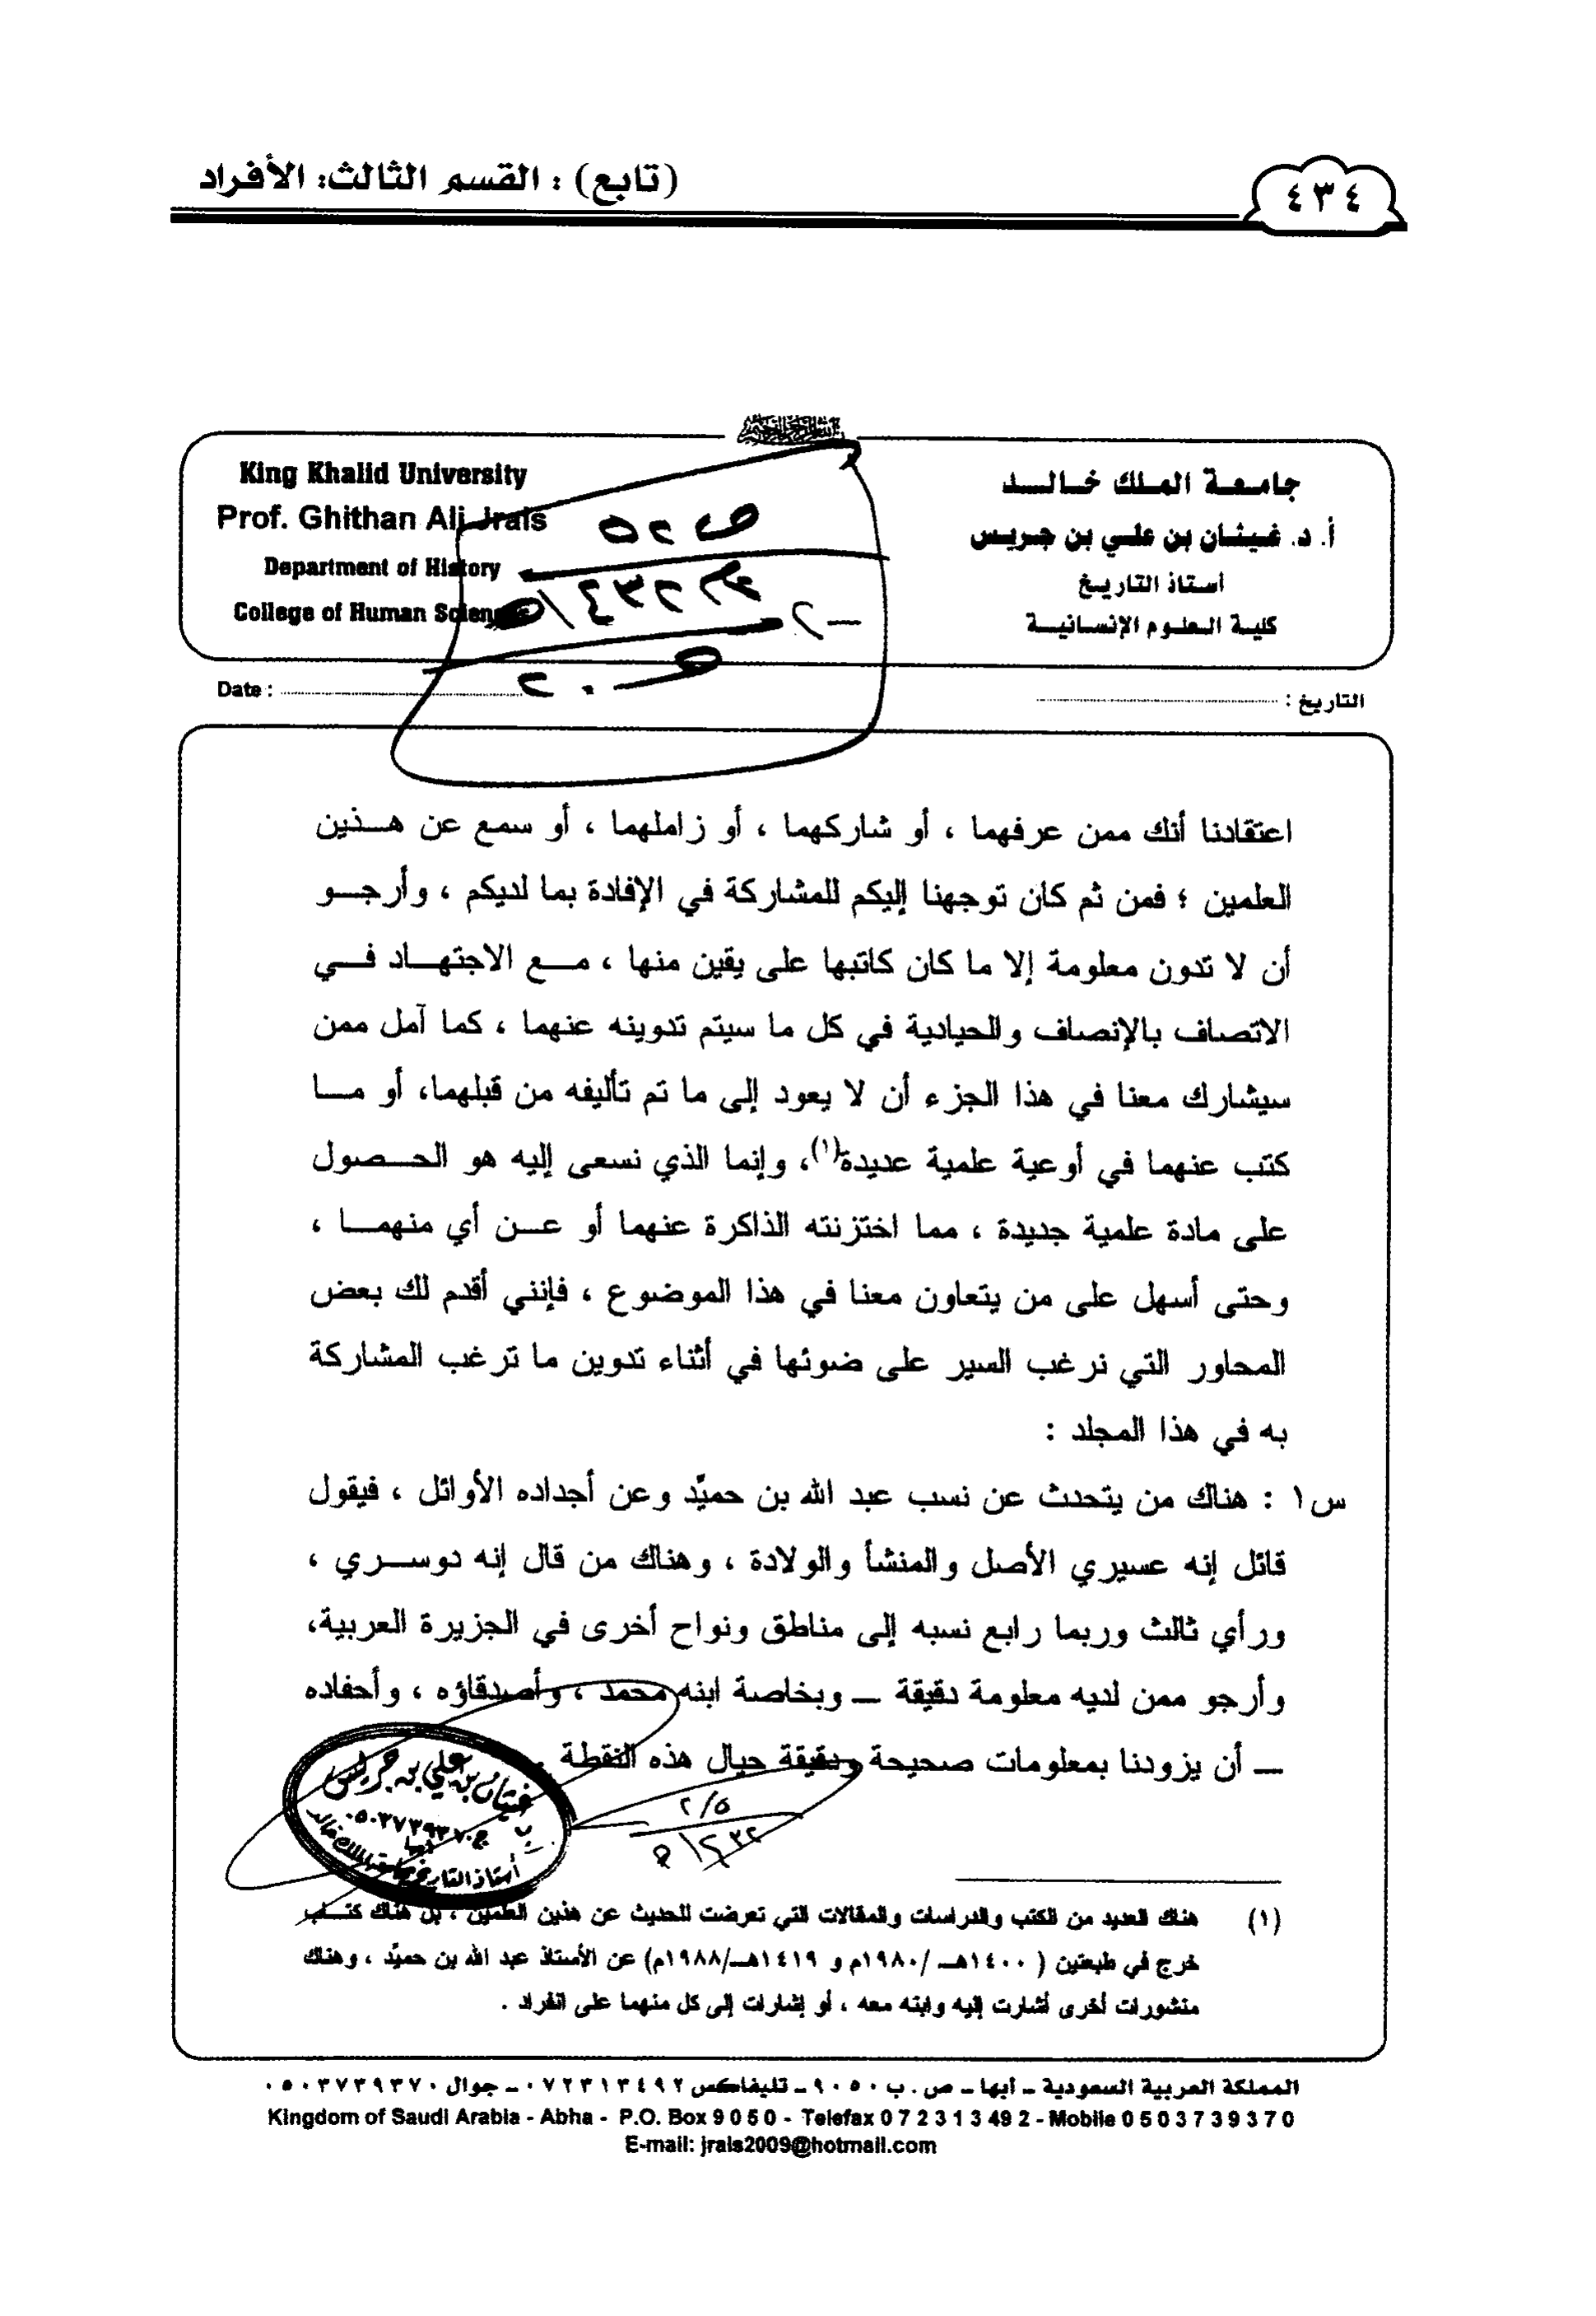 ٤٣٤
(تابع) : القسم الثالث: الأفراد
جامعة الملك خالد
أ. د. غيثان بن علي بن جريس
أستاذ التاريخ
كلية العلوم الإنسانية
King Khalid University
Prof. Ghithan Ali Jrais
Department of History
College of Human Sciences
التاريخ :
Date :
اعتقادنا أنك ممن عرفهما ، أو شاركهما ، أو زاملهما ، أو سمع عن هذين
العلمين ؛ فمن ثم كان توجهنا إليكم للمشاركة في الإفادة بما لديكم ، وأرجو
أن لا تدون معلومة إلا ما كان كاتبها على يقين منها ، مع الاجتهاد في
الاتصاف بالإنصاف والحيادية في كل ما سيتم تدوينه عنهما ، كما آمل ممن
سيشارك معنا في هذا الجزء أن لا يعود إلى ما تم تأليفه من قبلهما، أو ما
كتب عنهما في أوعية علمية عديدة(١)، وإنما الذي نسعى إليه هو الحصول
على مادة علمية جديدة ، مما اختزنته الذاكرة عنهما أو عن أي منهما ،
وحتى أسهل على من يتعاون معنا في هذا الموضوع ، فإنني أقدم لك بعض
المحاور التي نرغب السير على ضوئها في أثناء تدوين ما ترغب المشاركة
به في هذا المجلد :
س١ : هناك من يتحدث عن نسب عبد الله بن حميِّد وعن أجداده الأوائل ، فيقول
قائل إنه عسيري الأصل والمنشأ والولادة ، وهناك من قال إنه دوسري ،
ورأي ثالث وربما رابع نسبه إلى مناطق ونواح أخرى في الجزيرة العربية،
وأرجو ممن لديه معلومة دقيقة ـ وبخاصة ابنه محمد ، وأصدقاؤه ، وأحفاده
ـ أن يزودنا بمعلومات صحيحة ودقيقة حيال هذه النقطة .
غيثان بن علي بن جريس
ج ٠٥٠٣٧٣٩٣٧٠
أبها
أستاذ التاريخ بجامعة الملك خالد
٢/٥
(١) هناك العديد من الكتب والدراسات والمقالات التي تعرضت للحديث عن هذين العلمين ، بل هناك كتاب
خرج في طبعتين ( ١٤٠٠هـ /١٩٨٠م و ١٤١٩هـ/١٩٨٨م) عن الأستاذ عبد الله بن حميِّد ، وهناك
منشورات أخرى أشارت إليه وابنه معه ، أو إشارات إلى كل منهما على انفراد .
المملكة العربية السعودية ـ أبها ـ ص . ب ٩٠٥٠ ـ تليفاكس ٠٧٢٣١٣٤٩٢ ـ جوال ٠٥٠٣٧٣٩٣٧٠
Kingdom of Saudi Arabia - Abha - P.O. Box 9 0 5 0 - Telefax 0 7 2 3 1 3 49 2 - Mobile 0 5 0 3 7 3 9 3 7 0
E-mail: jrais2009@hotmail.com